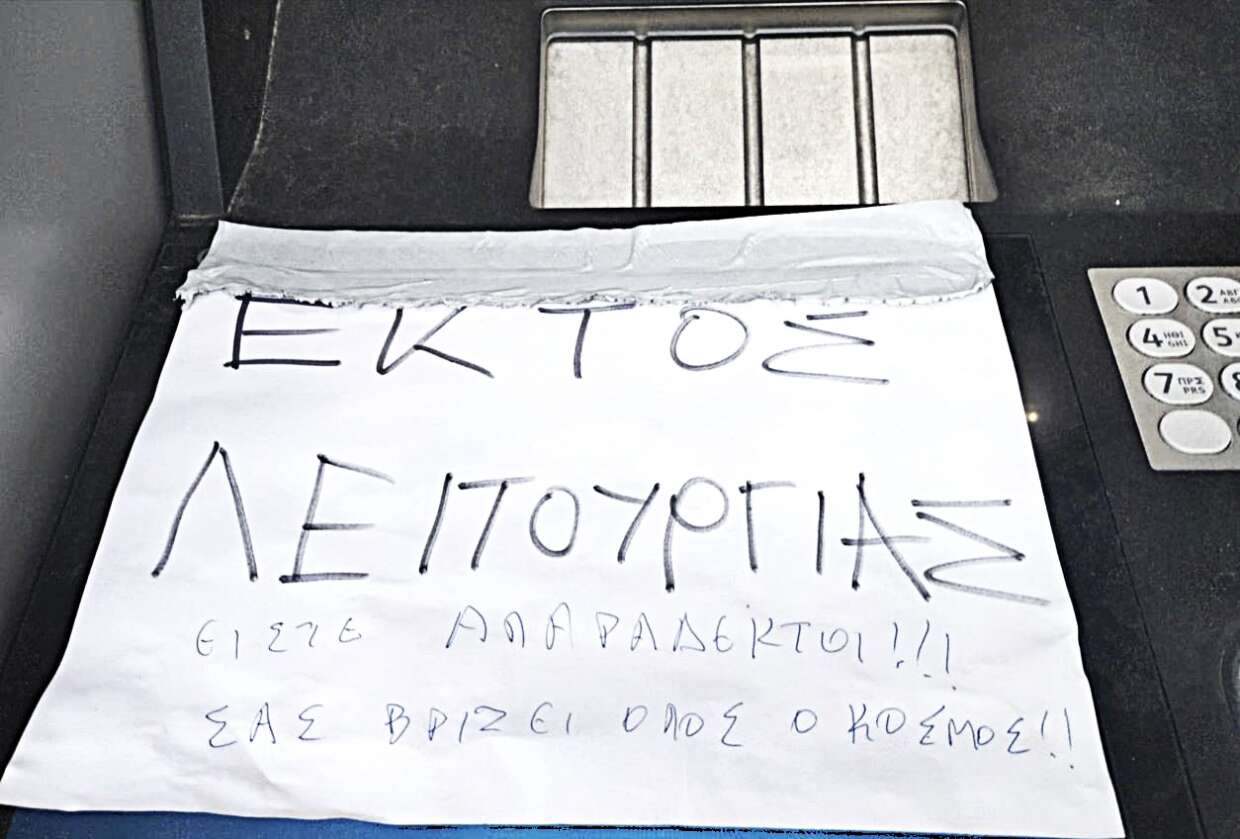 ΕΚΤΟΣ
ΛΕΙΤΟΥΡΓΙΑΣ
ΕΙΣΤΕ ΑΠΑΡΑΔΕΚΤΟΙ!!!
ΣΑΣ ΒΡΙΖΕΙ ΟΛΟΣ Ο ΚΟΣΜΟΣ!!
1 2 ΑΒΓ ABC
4 ΗΘΙ GHI 5 Κ
7 ΠΡΣ PRS 8